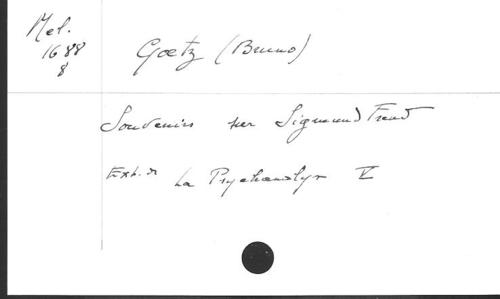 Mel.
1688
8
Goetz (Bruno)
Souvenirs sur Sigmund Freud
Extr. de La Psychanalyse V